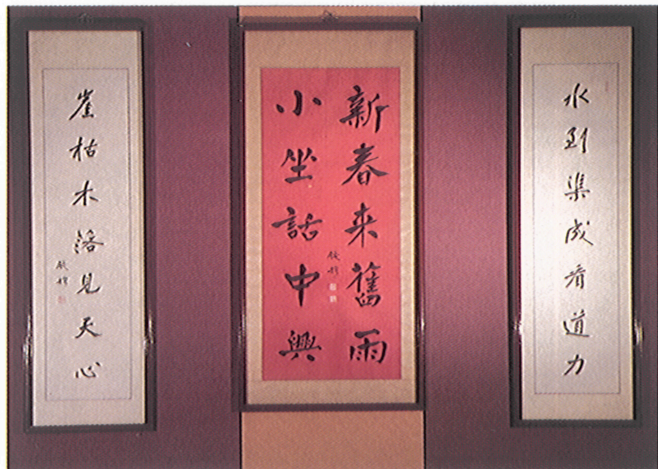 水到渠成看道力
新春来舊雨
小坐話中興
錢穆
崖枯木落見天心
錢穆